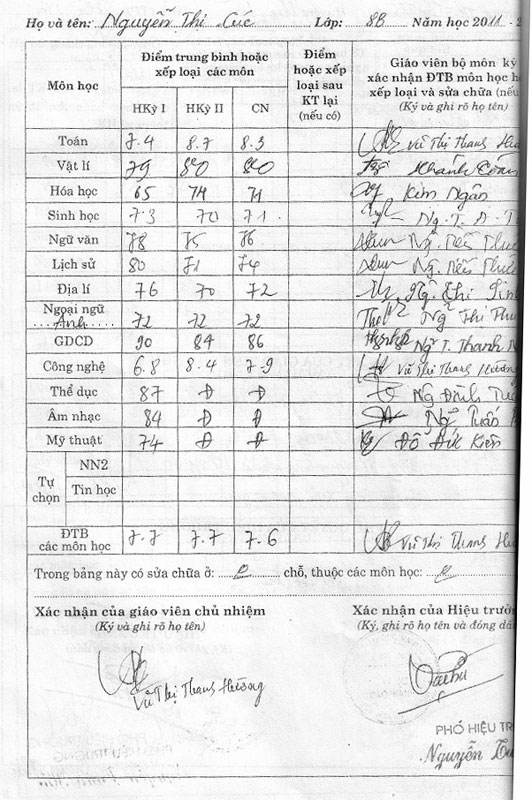 Họ và tên: Nguyễn Thị Cúc Lớp: 8B Năm học 2011 - 2
Môn học
Điểm trung bình hoặc xếp loại các môn
HKỳ I HKỳ II CN
Điểm hoặc xếp loại sau KT lại (nếu có)
Giáo viên bộ môn ký
xác nhận ĐTB môn học h
xếp loại và sửa chữa (nếu
(Ký và ghi rõ họ tên)
Toán 7.4 8.7 8.3 Vũ Thị Thanh Hư
Vật lí 79 80 80 Khánh
Hóa học 65 74 71 Kim Ngân
Sinh học 73 70 71. Ng. T. D. T
Ngữ văn 78 75 76 Ng.
Lịch sử 80 71 74 Ng.
Địa lí 76 70 72 Ng. Thị
Ngoại ngữ Anh 72 72 72 Ng Thị
GDCD 90 84 86 Ng T. Thanh
Công nghệ 6.8 8.4 7.9 Vũ Thị Thanh Hương
Thể dục 87 Đ Đ Ng Đình
Âm nhạc 84 Đ Đ Ng Tuấn
Mỹ thuật 74 Đ Đ Đỗ Đức Kiên
Tự chọn NN2
Tin học
ĐTB các môn học 7.7 7.7 7.6 Vũ Thị Thanh Hư
Trong bảng này có sửa chữa ở: chỗ, thuộc các môn học:
Xác nhận của giáo viên chủ nhiệm
(Ký và ghi rõ họ tên)
Vũ Thị Thanh Hương
Xác nhận của Hiệu trưở
(Ký, ghi rõ họ tên và đóng dấ
PHÓ HIỆU TR
Nguyễn